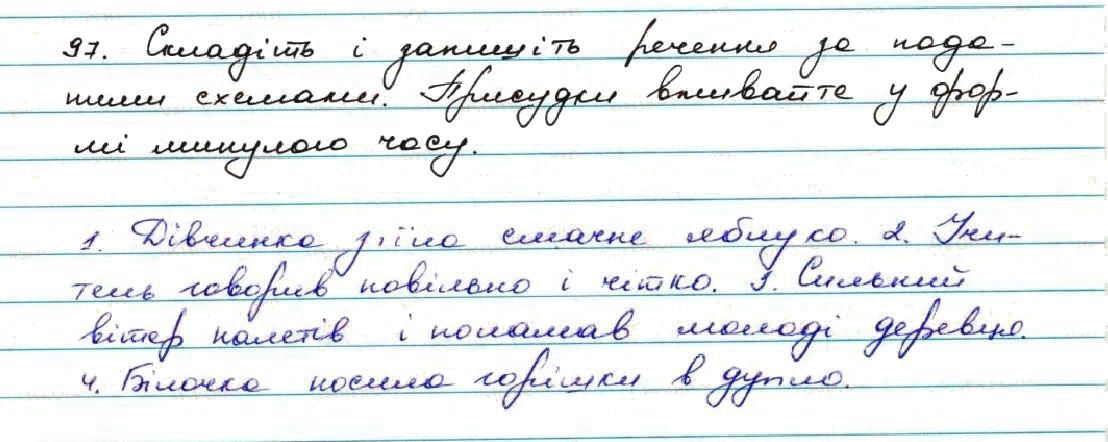 97. Складіть і запишіть речення за пода-
ними схемами. Присудки вживайте у фор-
мі минулого часу.
1. Дівчинка з'їла смачне яблуко. 2. Учи-
тель говорив повільно і чітко. 3. Сильний
вітер налетів і поламав молоді деревця.
4. Білочка носила горішки в дупло.